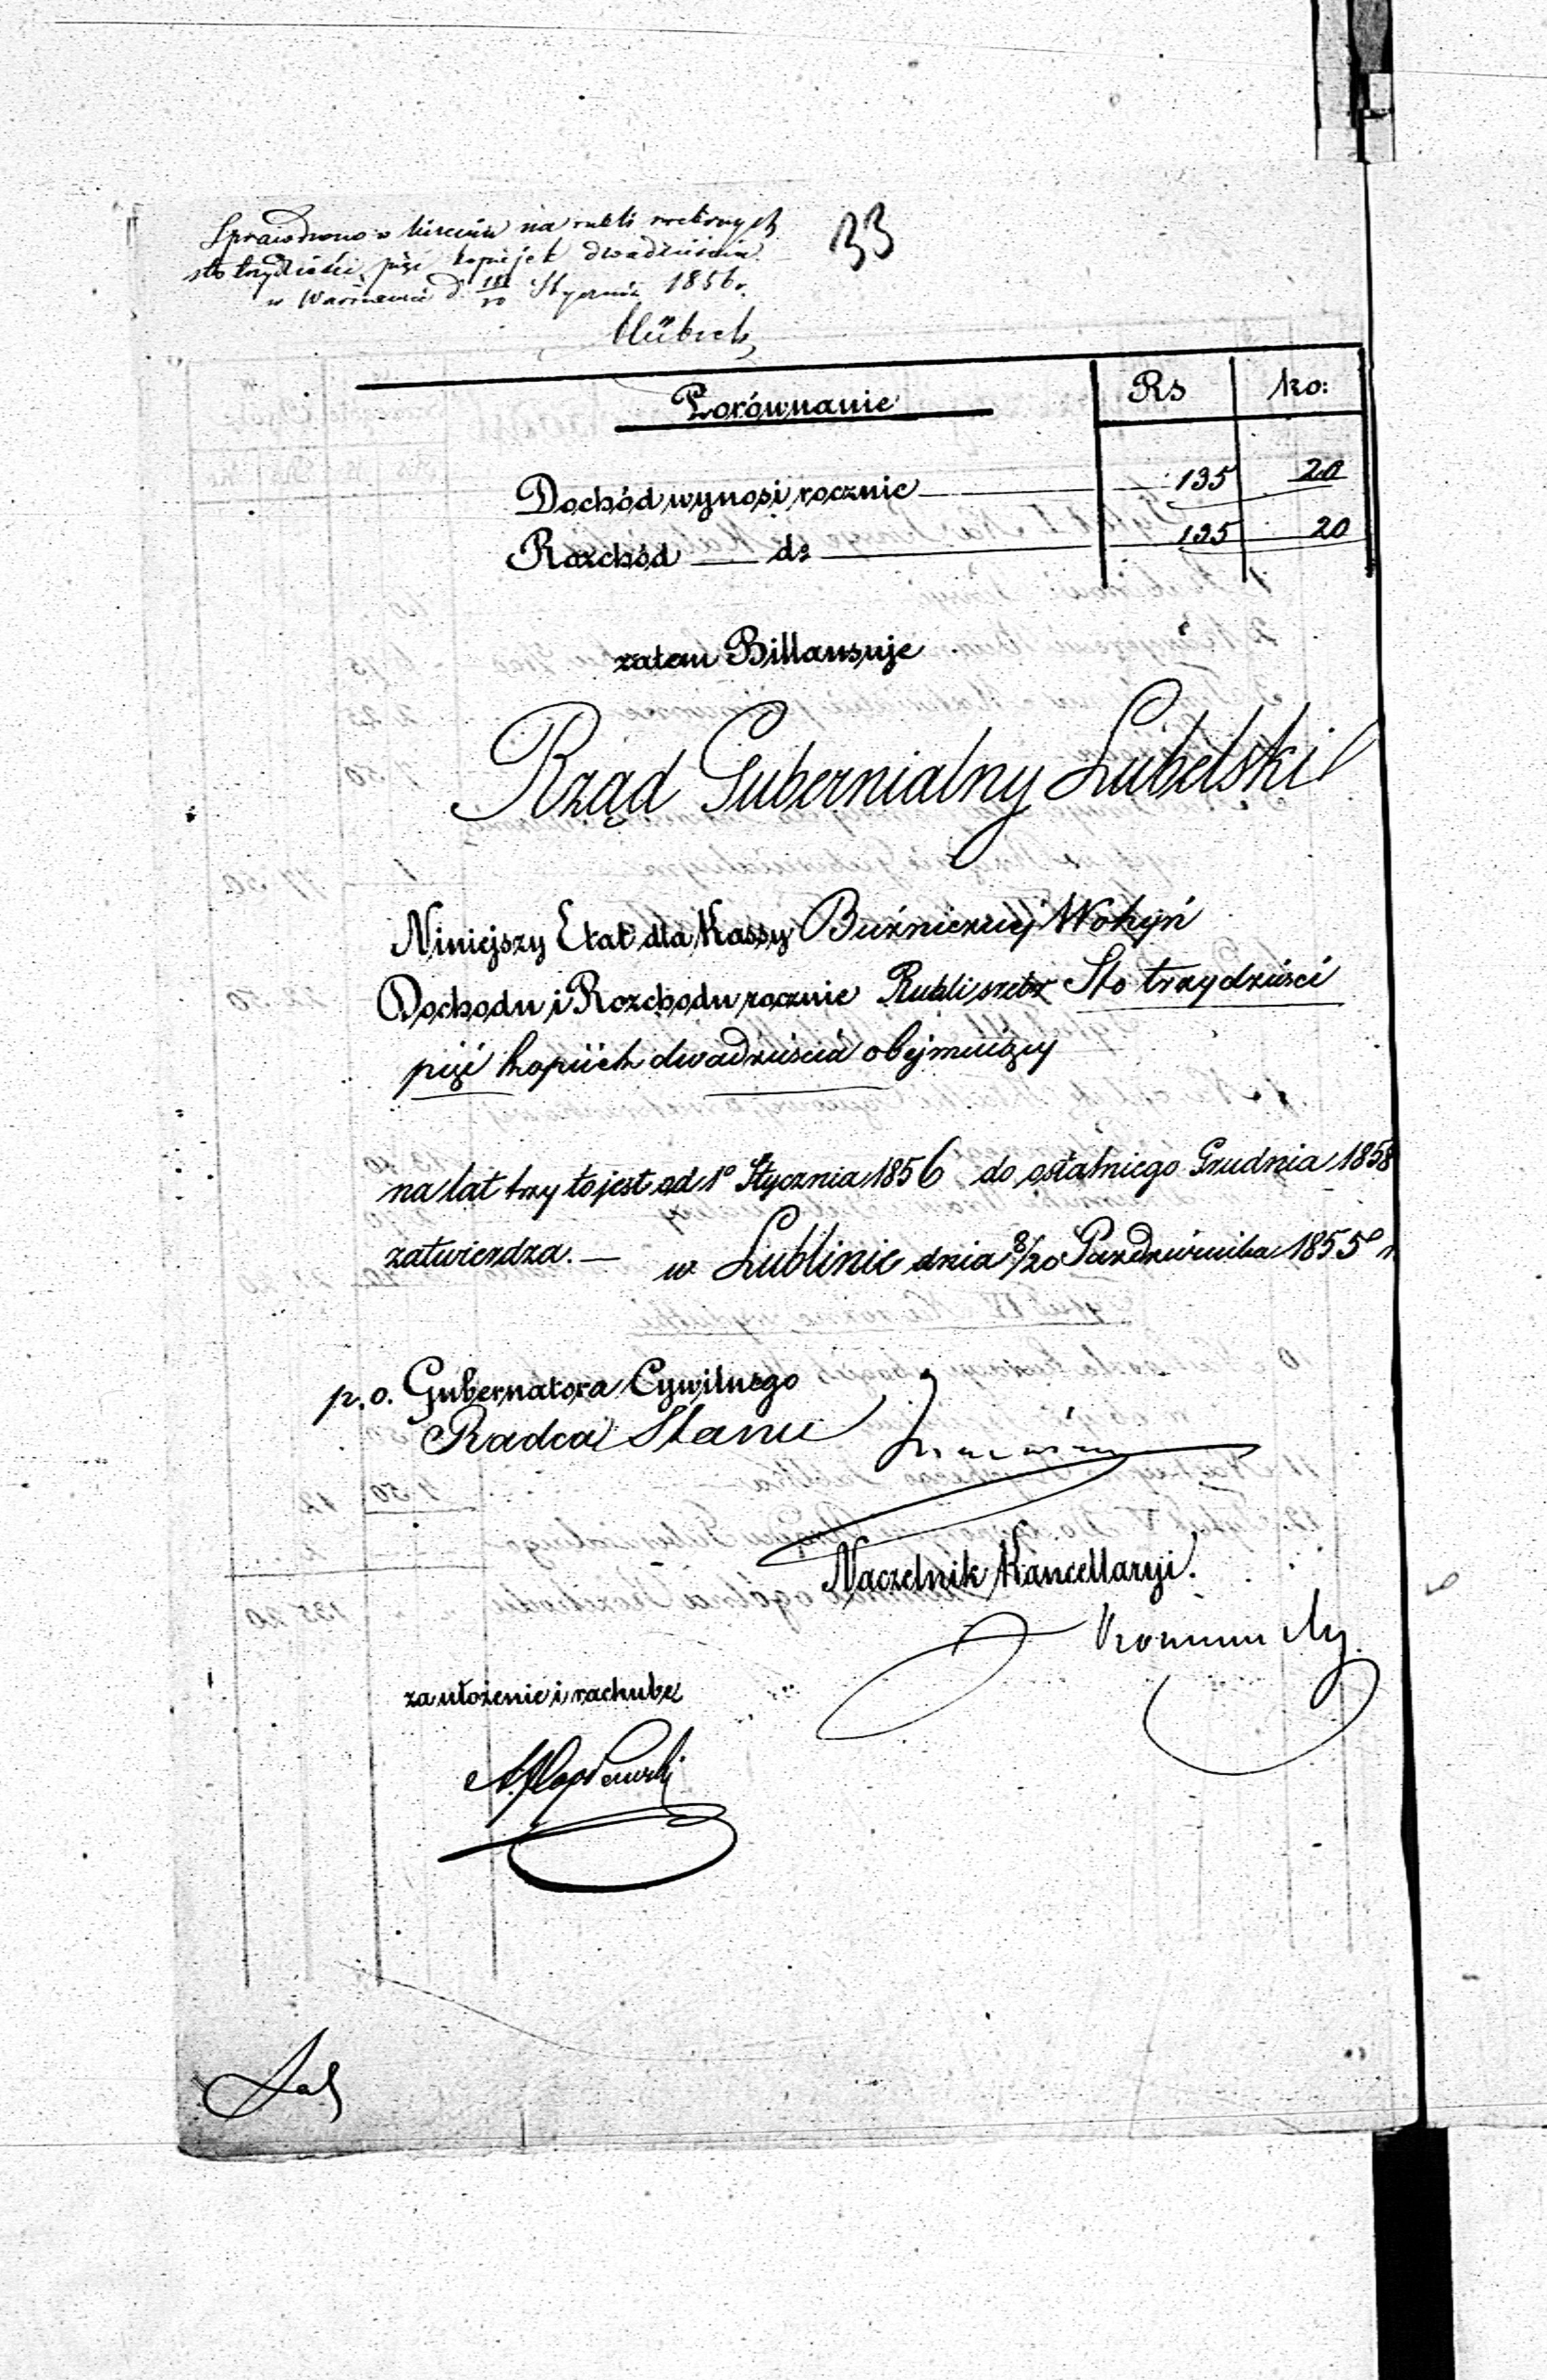 Sprawdzono w liczeniu na rubli srebrnych
sto trzydzieści pięć kopiejek dwadzieścia
w Warszawie d. 10 Stycznia 1856 r.
33
Porównanie Rs ko:
Dochód wynosi rocznie 135 20
Rozchód do 135 20
zatem Billansuje
Rząd Gubernialny Lubelski
Niniejszy Etat dla Kassy Bużnicznej Wohyń
Dochodu i Rozchodu rocznie Rubli srebr Sto trzydzieści
pięć kopiiek dwadzieścia obejmujący
na lat trzy to jest od 1º Stycznia 1856 do ostatniego Grudnia 1858
zatwierdza. — w Lublinie dnia 8/20 Października 1855 r
p. o. Gubernatora Cywilnego
Radca Stanu
Naczelnik Kancellaryi.
za ułożenie i rachubę